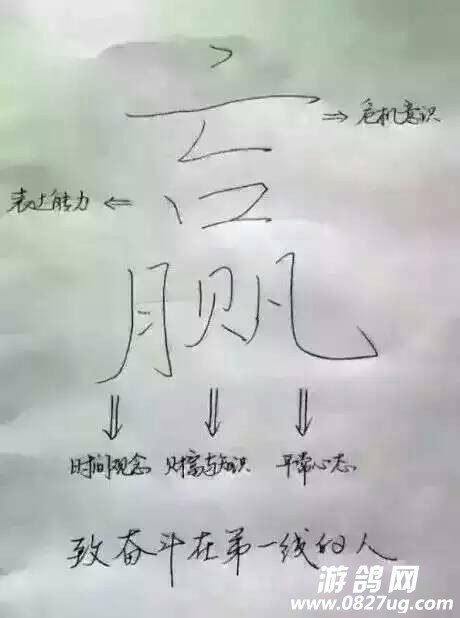 赢
⇒ 危机意识
表达能力 ⇐
时间观念 财富与知识 平常心态
致奋斗在第一线的人
游鸽网
www.0827ug.com